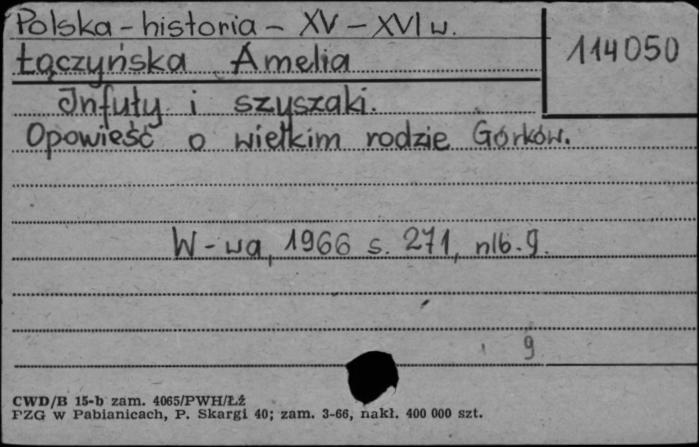 Polska - historia - XV - XVI w.
114050
Łączyńska Amelia
Infuły i szyszaki.
Opowieść o wielkim rodzie Górków.
W-wa, 1966 s. 271, nlb. 9.
9
CWD/B 15-b zam. 4065/PWH/Łź
PZG w Pabianicach, P. Skargi 40; zam. 3-66, nakł. 400 000 szt.